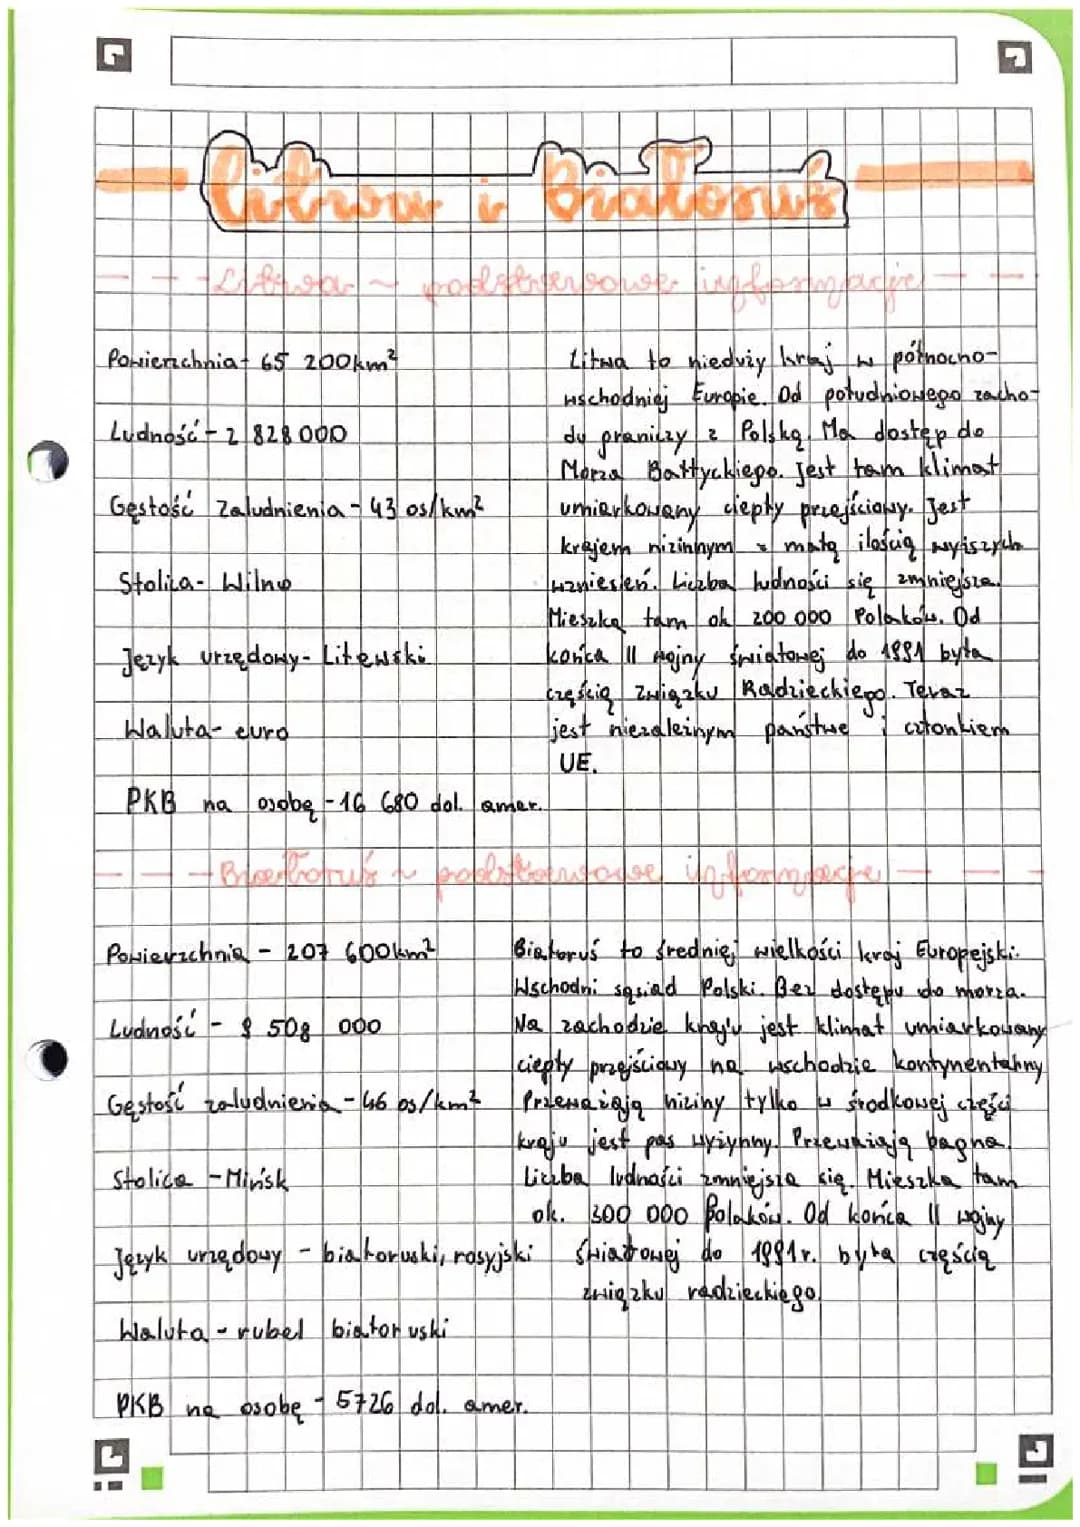 Litwa i Białoruś
Litwa ~ podstawowe informacje
Powierzchnia - 65 200km²
Ludność - 2 828 000
Gęstość Zaludnienia - 43 os/km²
Stolica - Wilno
Język urzędowy - Litewski
Waluta - euro
PKB na osobę - 16 680 dol. amer.
Litwa to nieduży kraj w północno-
wschodniej Europie. Od południowego zacho-
du graniczy z Polską. Ma dostęp do
Morza Bałtyckiego. Jest tam klimat
umiarkowany ciepły przejściowy. Jest
krajem nizinnym z małą ilością wyższych
wzniesień. Liczba ludności się zmniejsza.
Mieszka tam ok 200 000 Polaków. Od
końca II wojny światowej do 1991 była
częścią Związku Radzieckiego. Teraz
jest niezależnym państwe i członkiem
UE.
Białoruś ~ podstawowe informacje
Powierzchnia - 207 600km²
Ludność - 508 000
Gęstość zaludnienia - 46 os/km²
Stolica - Mińsk
Język urzędowy - białoruski, rosyjski
Waluta - rubel białoruski
PKB na osobę - 5726 dol. amer.
Białoruś to średniej wielkości kraj Europejski.
Wschodni sąsiad Polski. Bez dostępu do morza.
Na zachodzie kraju jest klimat umiarkowany
ciepły przejściowy na wschodzie kontynentalny
Przeważają niziny tylko w środkowej części
kraju jest pas wyżynny. Przeważają bagna.
Liczba ludności zmniejsza się. Mieszka tam
ok. 300 000 Polaków. Od końca II wojny
Światowej do 1991r. była częścią
związku radzieckiego.